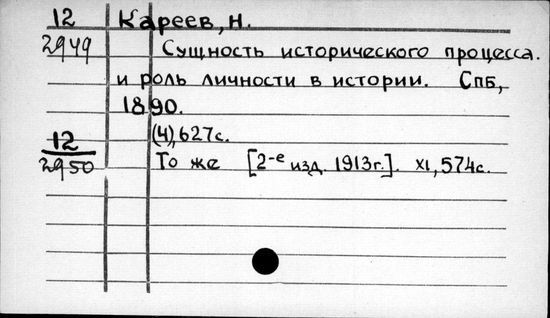 12 Кареев, Н.
2949 Сущность исторического процесса.
и роль личности в истории. Спб,
1890.
(4), 627с.
12
2950 То же [2-е изд. 1913г.]. XI, 574с.